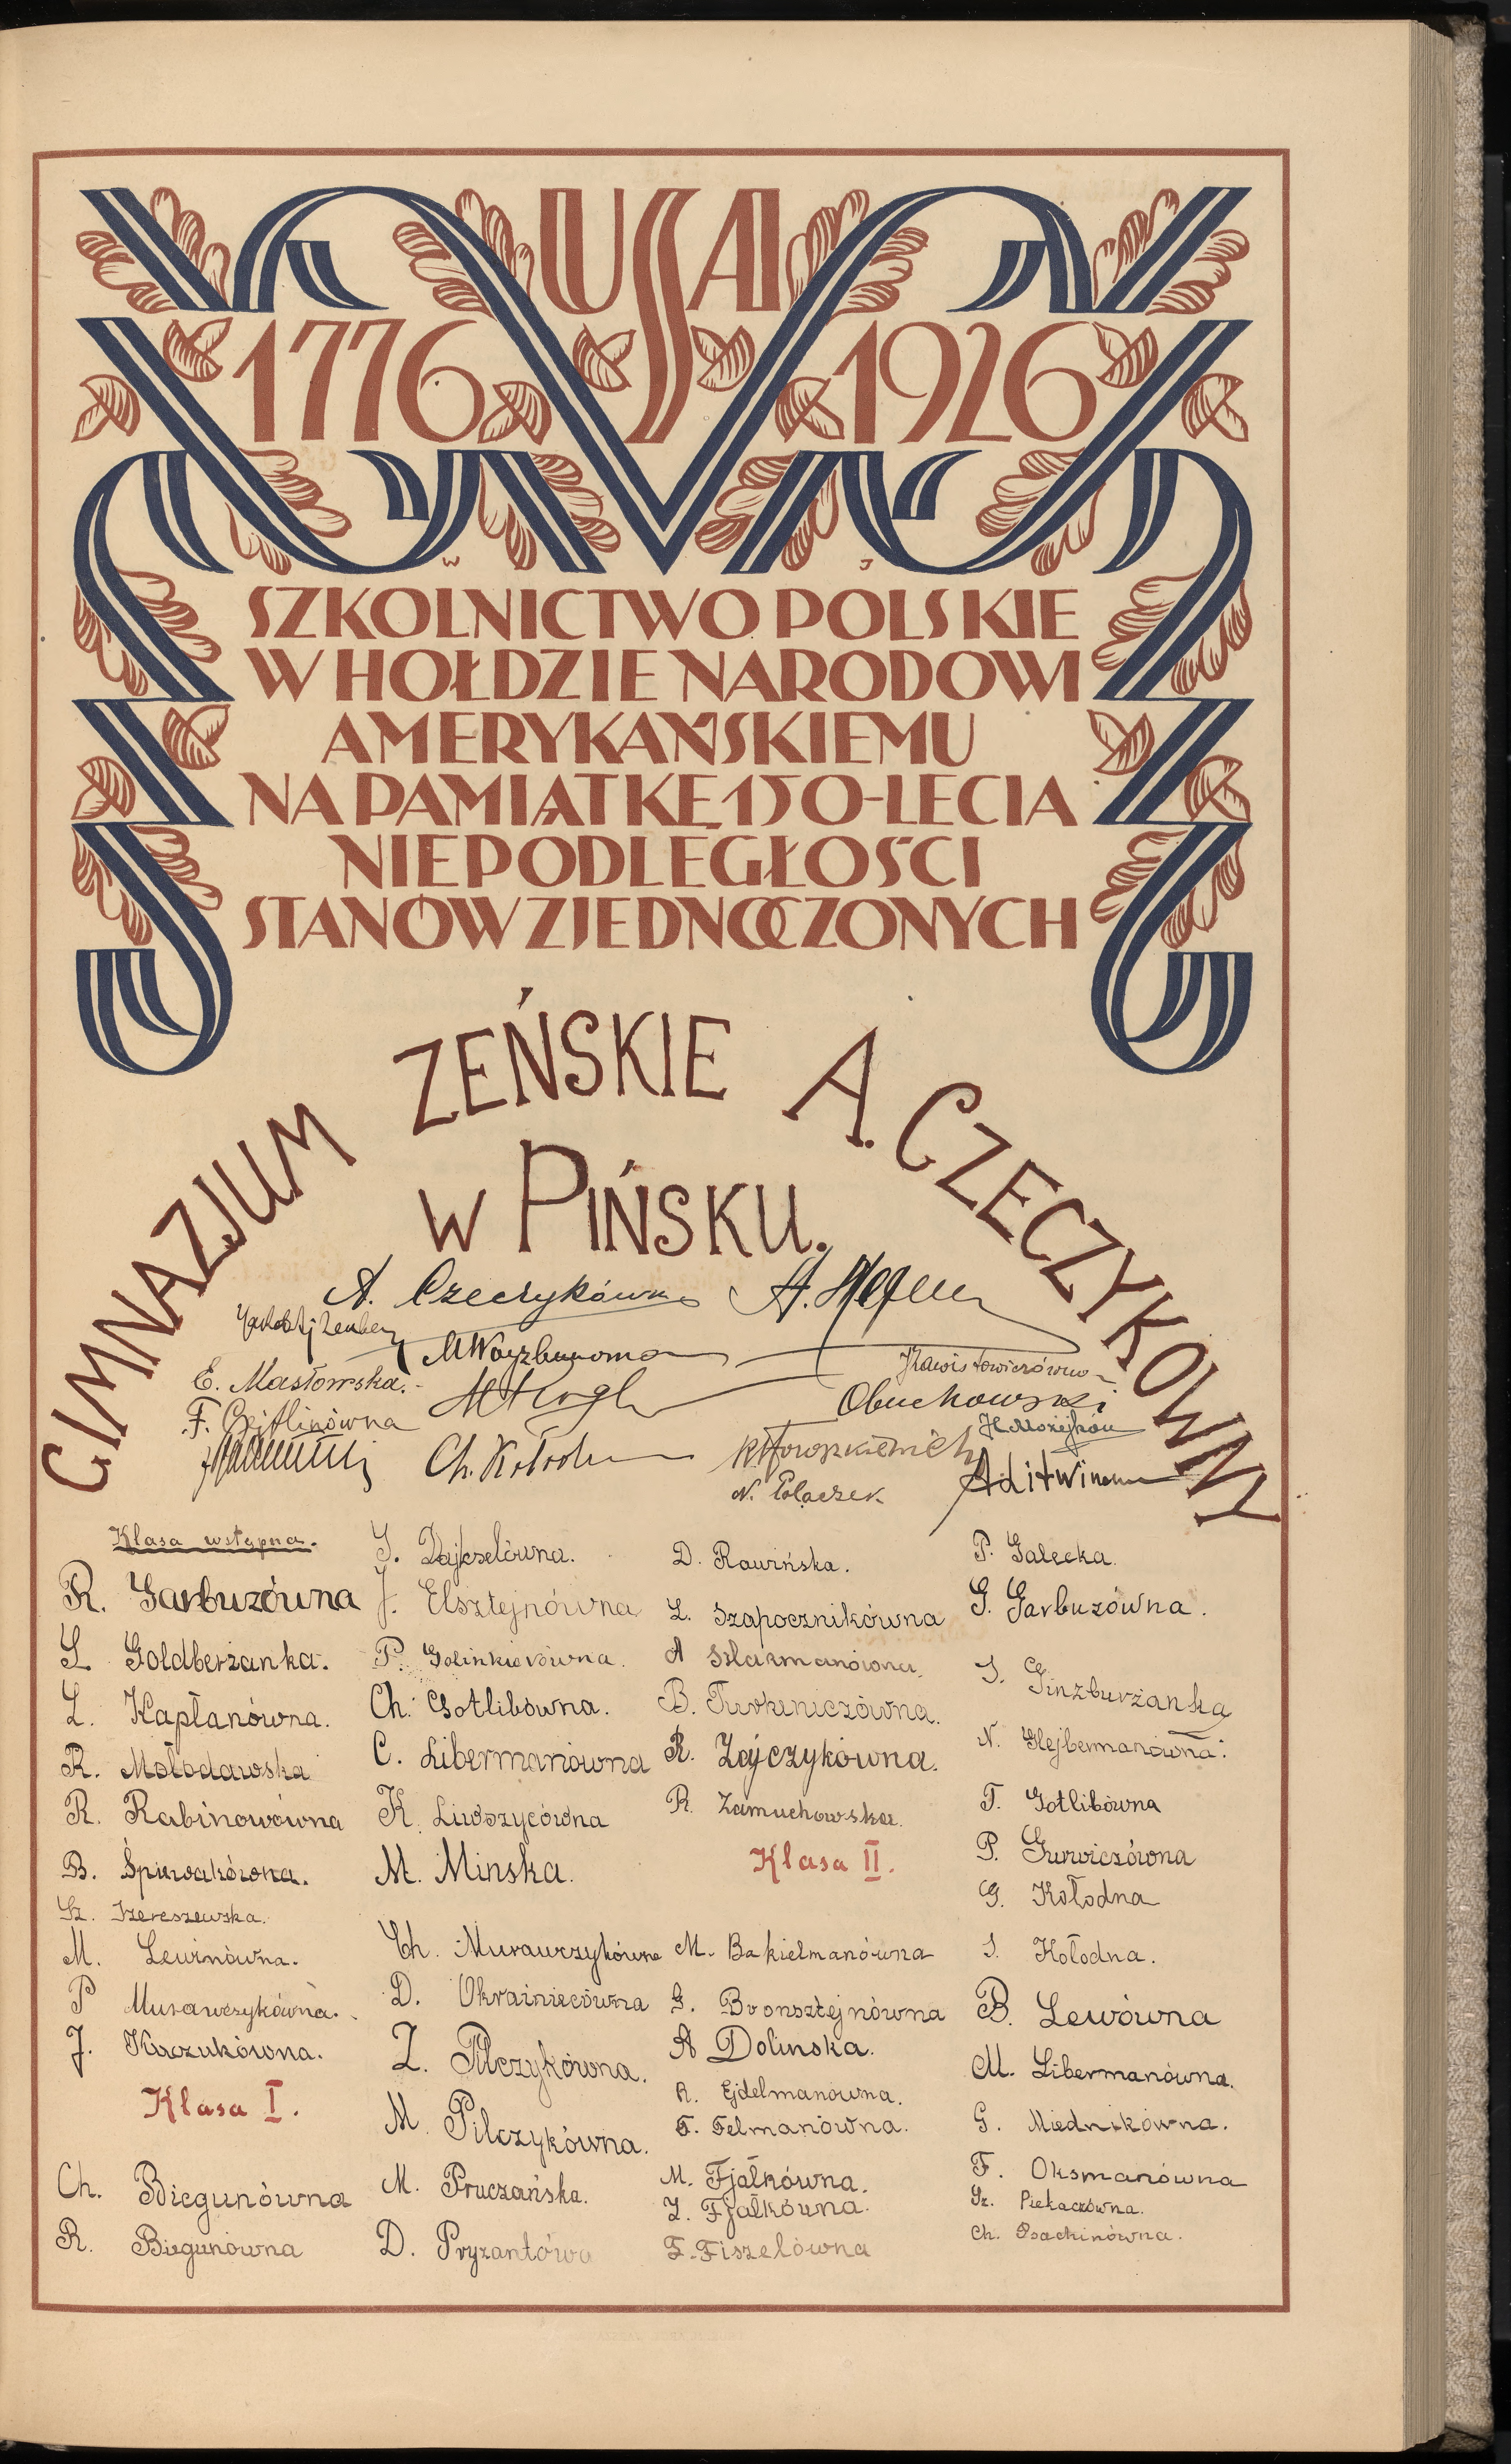 USA
1776 1926
W J
SZKOLNICTWO POLSKIE
W HOŁDZIE NARODOWI
AMERYKAŃSKIEMU
NA PAMIĄTKĘ 150-LECIA
NIEPODLEGŁOŚCI
STANÓW ZJEDNOCZONYCH
GIMNAZJUM ZEŃSKIE A. CZECZYKOWNY
W PIŃSKU.
A. Czeczykówna A.
E. Masłowska.
Obuchowski
F. Cejtlinówna
H. Możejków
Ch.
N. Polaczek
Klasa wstępna.
R. Garbuzówna
L. Goldberżanka.
L. Kapłanówna.
R. Mołodawska
R. Rabinowówna
B. Śpiewakówna.
Sz. Szereszewska.
M. Lewinówna.
P Murawczykówna.
J. Kaczukówna.
Klasa I.
Ch. Biegunówna
R. Biegunówna
J. Elsztejnówna
P. Golinkierówna.
Ch. Gotlibówna.
C. Libermanówna
K. Liwszycówna
M. Minska.
Ch. Murawczykówna
D. Okrainiecówna
Z. Pilczykówna.
M. Pilczykówna.
M. Pruczańska.
D. Pryzantówn
D. Rawińska.
L. Szapocznikówna
A Szlarmanówna.
B. Turkieniczówna.
R. Zajczykówna.
R. Zamuchowska.
Klasa II.
M. Bakielmanówna
G. Bronsztejnówna
A Dolinska.
R. Ejdelmanówna.
F. Felmanówna.
M. Fjałkówna.
Z. Fjałkówna.
F. Fiszelówna
P. Galecka.
G. Garbuzówna.
S. Ginzburżanka
N. Glejbermanówna.
T. Gotlibówna
P. Gurwiczówna
G. Kołodna
S. Kołodna.
B. Lewówna
M. Libermanówna.
G. Miednikówna.
F. Oksmanówna
Sz. Piekaczówna.
Ch. Psachinówna.